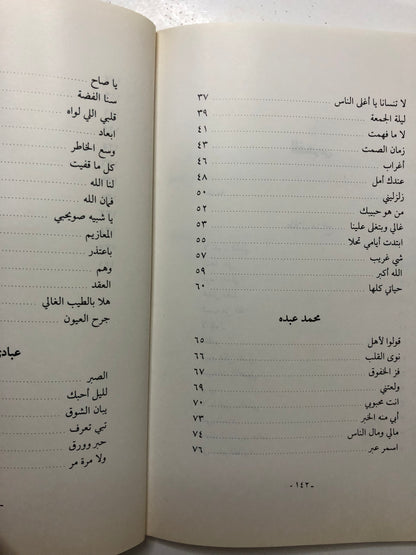 لا تنسانا يا أغلى الناس ٣٧
ليلة الجمعة ٣٩
لا ما فهمت ٤١
زمان الصمت ٤٣
أغراب ٤٦
عندك أمل ٤٨
زلزليني ٥٠
من هو حبيبك ٥٢
غالي وبتغلى علينا ٥٣
ابتدت أيامي تحلا ٥٥
شي غريب ٥٧
الله أكبر ٥٩
حياتي كلها ٦٠
محمد عبده
قولوا لاهل ٦٥
نوى القلب ٦٦
فز الخفوق ٦٧
ولعتني ٦٩
انت محبوبي ٧٠
أبي منه الخبر ٧٣
مالي ومال الناس ٧٤
اسمر عبر ٧٦
-١٤٢-
يا صاح
سنا الفضة
قلبي اللي لواه
ابعاد
وسع الخاطر
كل ما قفيت
لنا الله
فمان الله
يا شبيه صويحبي
المعازيم
باعتذر
وهم
العقد
هلا بالطيب الغالي
جرح العيون
عبادي
الصبر
لليل أحبك
يبان الشوق
تبي تعرف
حبر وورق
ولا مرة مر